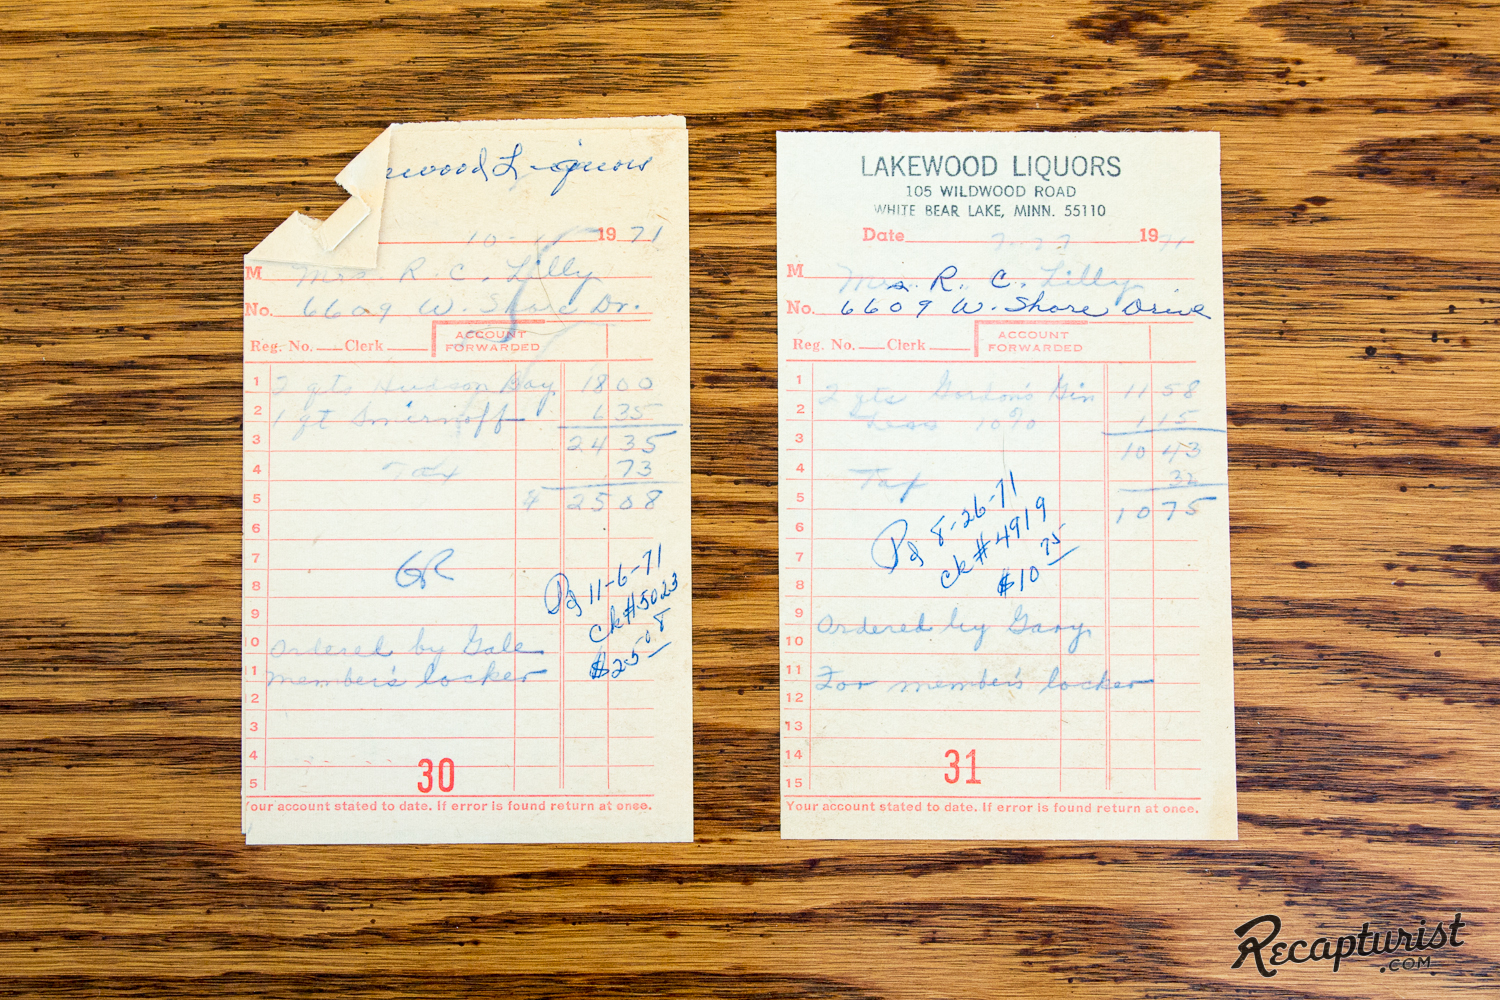 Liquors
19 71
M Mrs. R. C. Lilly
No. 6609 W. Shore Dr.
Reg. No. Clerk ACCOUNT FORWARDED
1 2 qts Hudson Bay 18 00
2 1 qt Smirnoff 6 35
3 24 35
4 Tax 73
5 25 08
6
7
8 GR
9
Pd 11-6-71
ck#5023
$25.08
10 Ordered by Gale
11 member's locker
2
3
4
5
30
our account stated to date. If error is found return at once.
LAKEWOOD LIQUORS
105 WILDWOOD ROAD
WHITE BEAR LAKE, MINN. 55110
Date 19 71
M Mrs. R. C. Lilly
No. 6609 W. Shore Drive
Reg. No. Clerk ACCOUNT FORWARDED
1 2 qts Gordon's Gin 11 58
2 Less 10% 1 15
3 10 43
4 Tax 32
5 10 75
6
7
8
Pd 8-26-71
ck#4919
$10 75
9
10 Ordered by Gary
11
12 For member's locker
13
14
15
31
Your account stated to date. If error is found return at once.
Recapturist
.COM